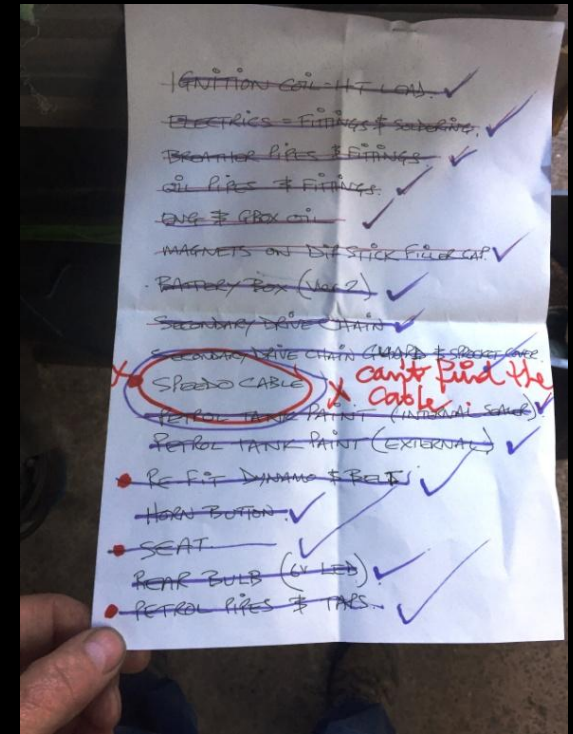 IGNITION COIL-HT LEAD.
ELECTRICS = FITTINGS & SOLDERING.
BREATHER PIPES & FITTINGS
OIL PIPES & FITTINGS.
ENG & GBOX OIL
MAGNETS ON DIPSTICK FILLER CAP.
BATTERY BOX (Ver 2)
SECONDARY DRIVE CHAIN
SECONDARY DRIVE CHAIN GUARD & SPROCKET COVER.
SPEEDO CABLE X can't find the
Cable.
PETROL TANK PAINT (INTERNAL SEALER)
PETROL TANK PAINT (EXTERNAL)
RE FIT DYNAMO & BELT
HORN BUTTON.
SEAT.
REAR BULB (6V LED)
PETROL PIPES & TAPS.